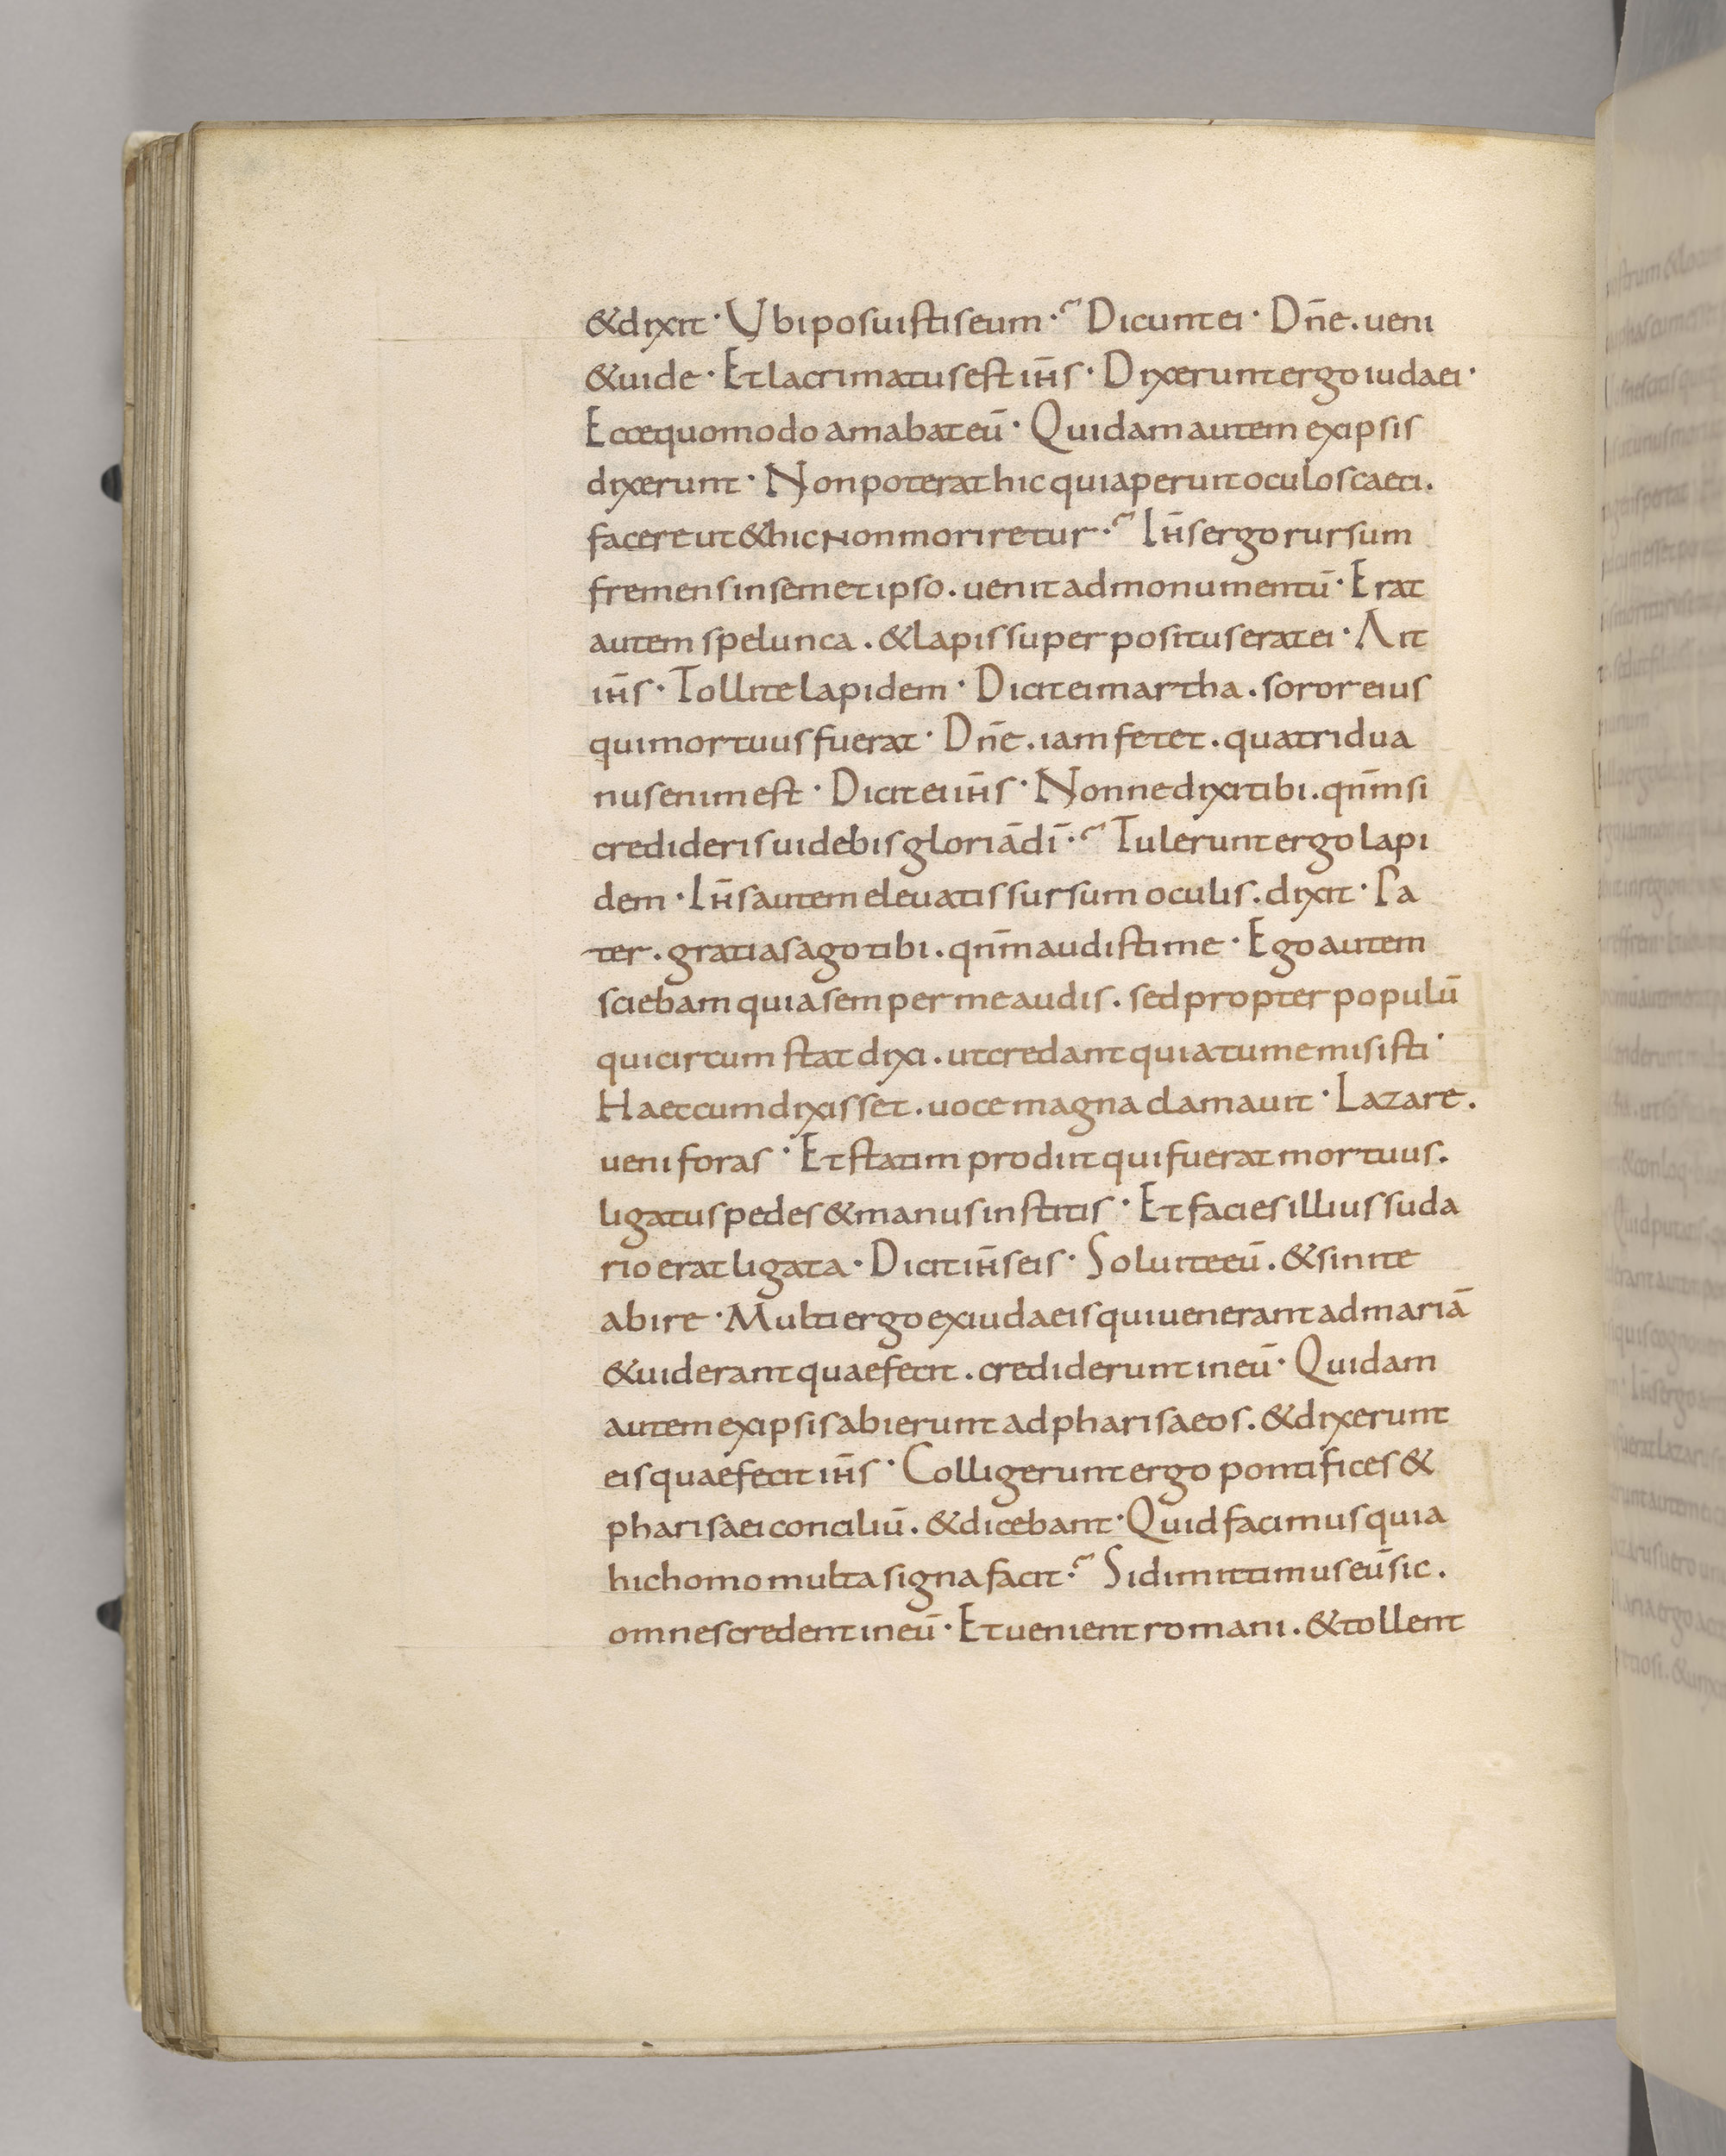 &dixit · Ubi posuistis eum ·? Dicunt ei · Dn̄e . ueni
& uide · Et lacrimatus est ih̄s · Dixerunt ergo iudaei ·
Ecce quomodo amabat eū · Quidam autem ex ipsis
dixerunt · Non poterat hic qui aperuit oculos caeci .
facere ut & hic non moriretur ·? Ih̄s ergo rursum
fremens in semet ipso . uenit ad monumentū · Erat
autem spelunca . & lapis super positus erat ei · Ait
ih̄s · Tollite lapidem · Dicit ei martha . soror eius
qui mortuus fuerat · Dn̄e . iam fetet . quatridua
nus enim est · Dicit ei ih̄s · Nonne dixi tibi . qn̄m si
credideris uidebis gloriā dī ·? Tulerunt ergo lapi
dem · Ih̄s autem eleuatis sursum oculis . dixit · Pa
ter . gratias ago tibi . qn̄m audisti me · Ego autem
sciebam quia semper me audis . sed propter populū
qui circum stat dixi . ut credant quia tu me misisti ·
Haec cum dixisset . uoce magna clamauit · Lazare .
ueni foras · Et statim prodiit qui fuerat mortuus .
ligatus pedes & manus institis · Et facies illius suda
rio erat ligata · Dicit ih̄s eis · Soluite eū . & sinite
abire · Multi ergo ex iudaeis qui uenerant ad mariā
& uiderant quae fecit . crediderunt in eū · Quidam
autem ex ipsis abierunt ad pharisaeos . & dixerunt
eis quae fecit ih̄s · Colligerunt ergo pontifices &
pharisaei conciliū . & dicebant · Quid facimus quia
hic homo multa signa facit ·? Si dimittimus eū sic .
omnes credent in eū · Et uenient romani . & tollent